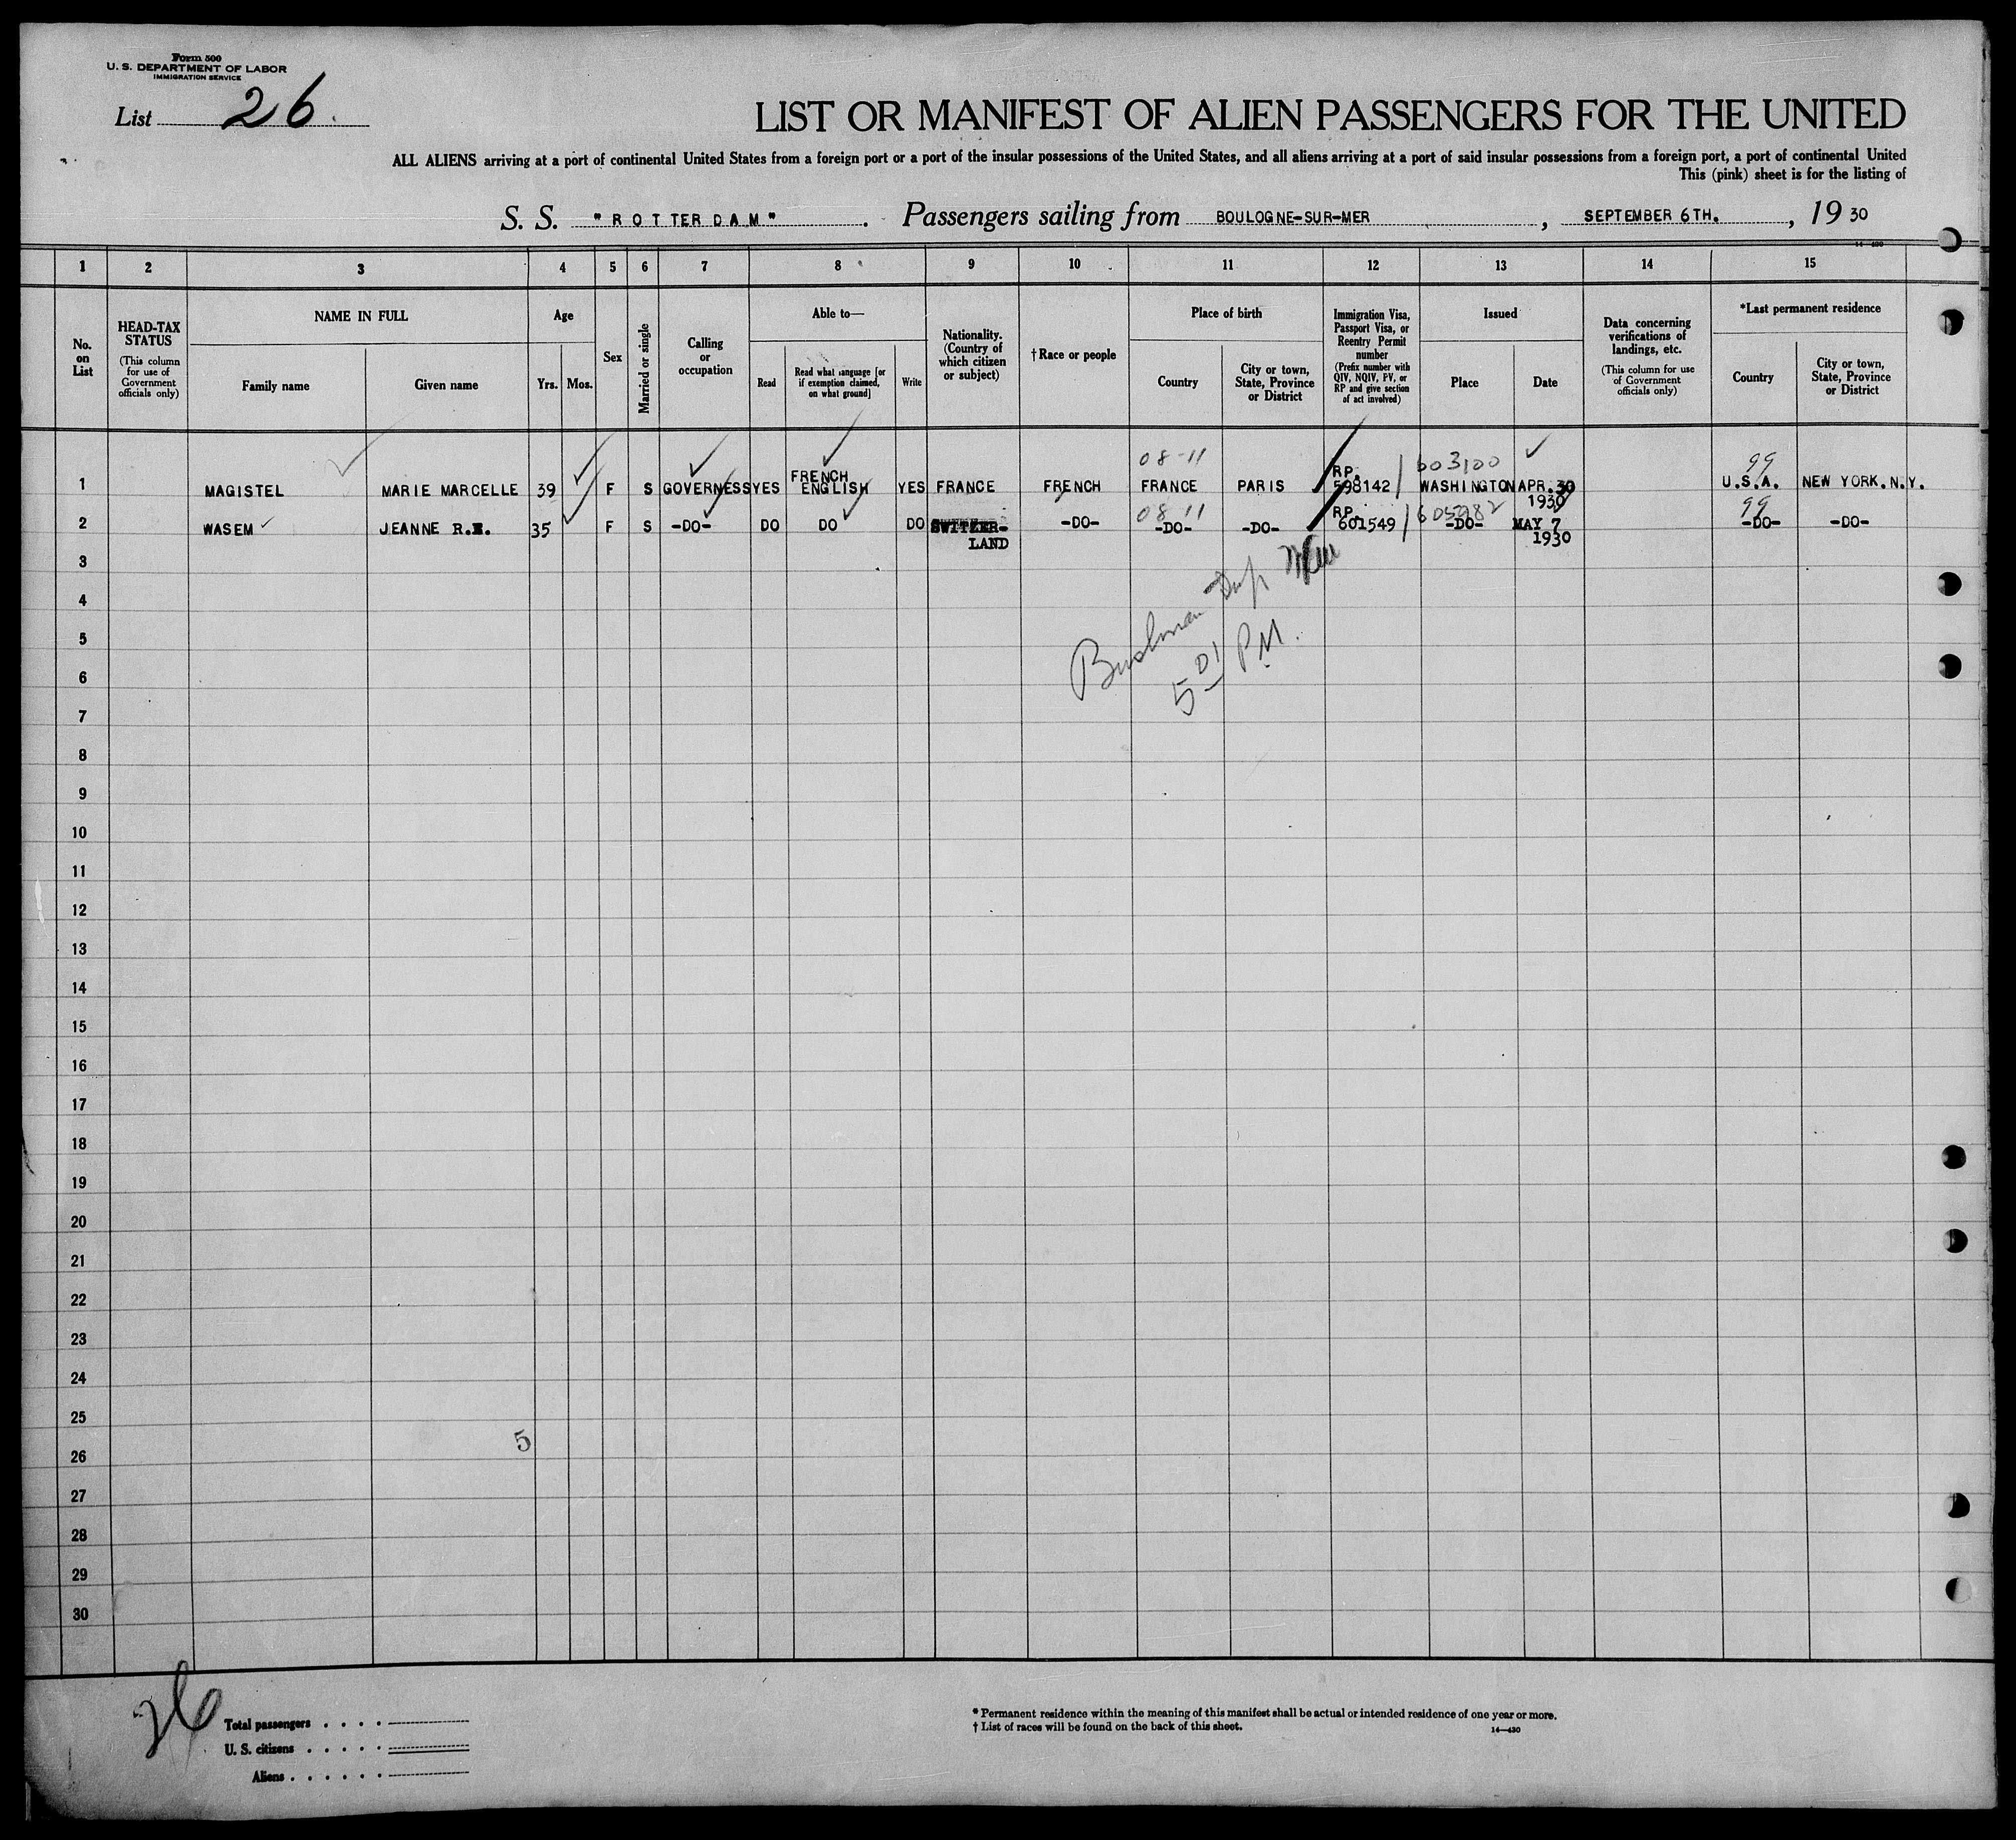 Form 500
U. S. DEPARTMENT OF LABOR
IMMIGRATION SERVICE
List 26.
LIST OR MANIFEST OF ALIEN PASSENGERS FOR THE UNITED
ALL ALIENS arriving at a port of continental United States from a foreign port or a port of the insular possessions of the United States, and all aliens arriving at a port of said insular possessions from a foreign port, a port of continental United
This (pink) sheet is for the listing of
S. S. "ROTTERDAM". Passengers sailing from BOULOGNE-SUR-MER, SEPTEMBER 6TH., 19 30
14-430
1 2 3 4 5 6 7 8 9 10 11 12 13 14 15
No. on List
HEAD-TAX STATUS
(This column for use of Government officials only)
NAME IN FULL
Family name
Given name
Age
Yrs.
Mos.
Sex
Married or single
Calling or occupation
Able to—
Read
Read what language [or if exemption claimed, on what ground]
Write
Nationality. (Country of which citizen or subject)
† Race or people
Place of birth
Country
City or town, State, Province or District
Immigration Visa, Passport Visa, or Reentry Permit number
(Prefix number with QIV, NQIV, PV, or RP and give section of act involved)
Issued
Place
Date
Data concerning verifications of landings, etc.
(This column for use of Government officials only)
*Last permanent residence
Country
City or town, State, Province or District
08-11 603100 99
FRENCH RP.
1 MAGISTEL MARIE MARCELLE 39 F S GOVERNESS YES ENGLISH YES FRANCE FRENCH FRANCE PARIS 598142 WASHINGTON APR.30 U.S.A. NEW YORK.N.Y.
1930
08 11 RP. 605982 99
2 WASEM JEANNE R.E. 35 F S -DO- DO DO DO SWITZER- -DO- -DO- -DO- 601549 -DO- MAY 7 -DO- -DO-
LAND 1930
3
4
Bushman
5
5 01 P.M.
6
7
8
9
10
11
12
13
14
15
16
17
18
19
20
21
22
23
24
25
5
26
27
28
29
30
26
Total passengers
U. S. citizens
Aliens
* Permanent residence within the meaning of this manifest shall be actual or intended residence of one year or more.
† List of races will be found on the back of this sheet.
14-430